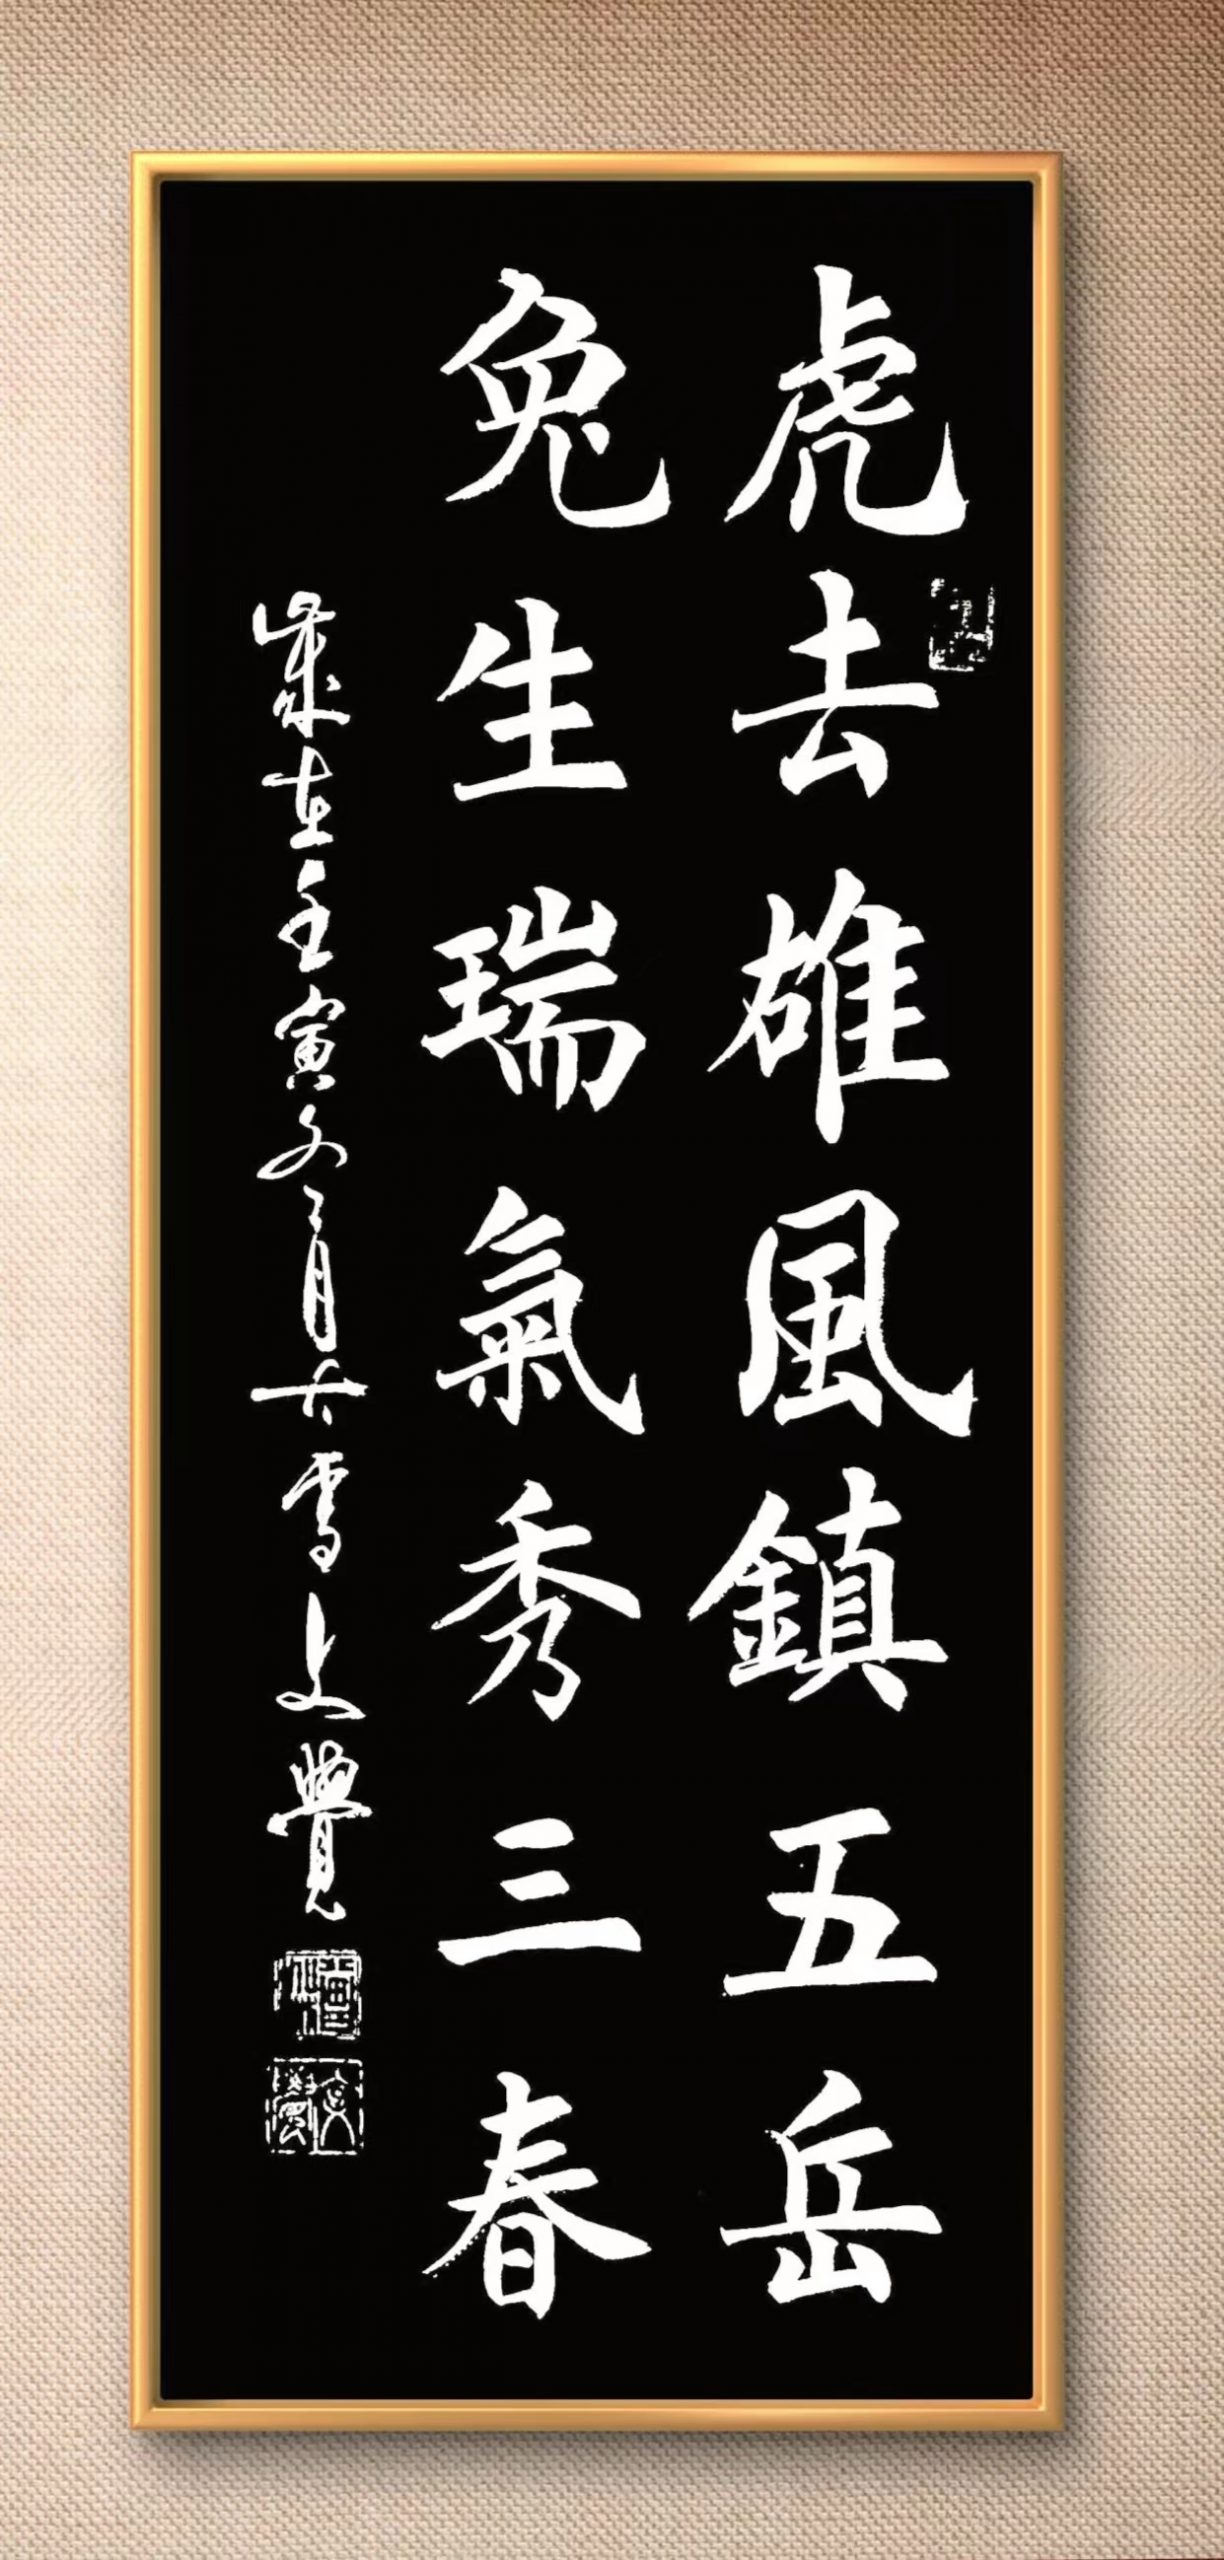 虎去雄風鎮五岳
兔生瑞氣秀三春
歲在壬寅冬月大雪文覺